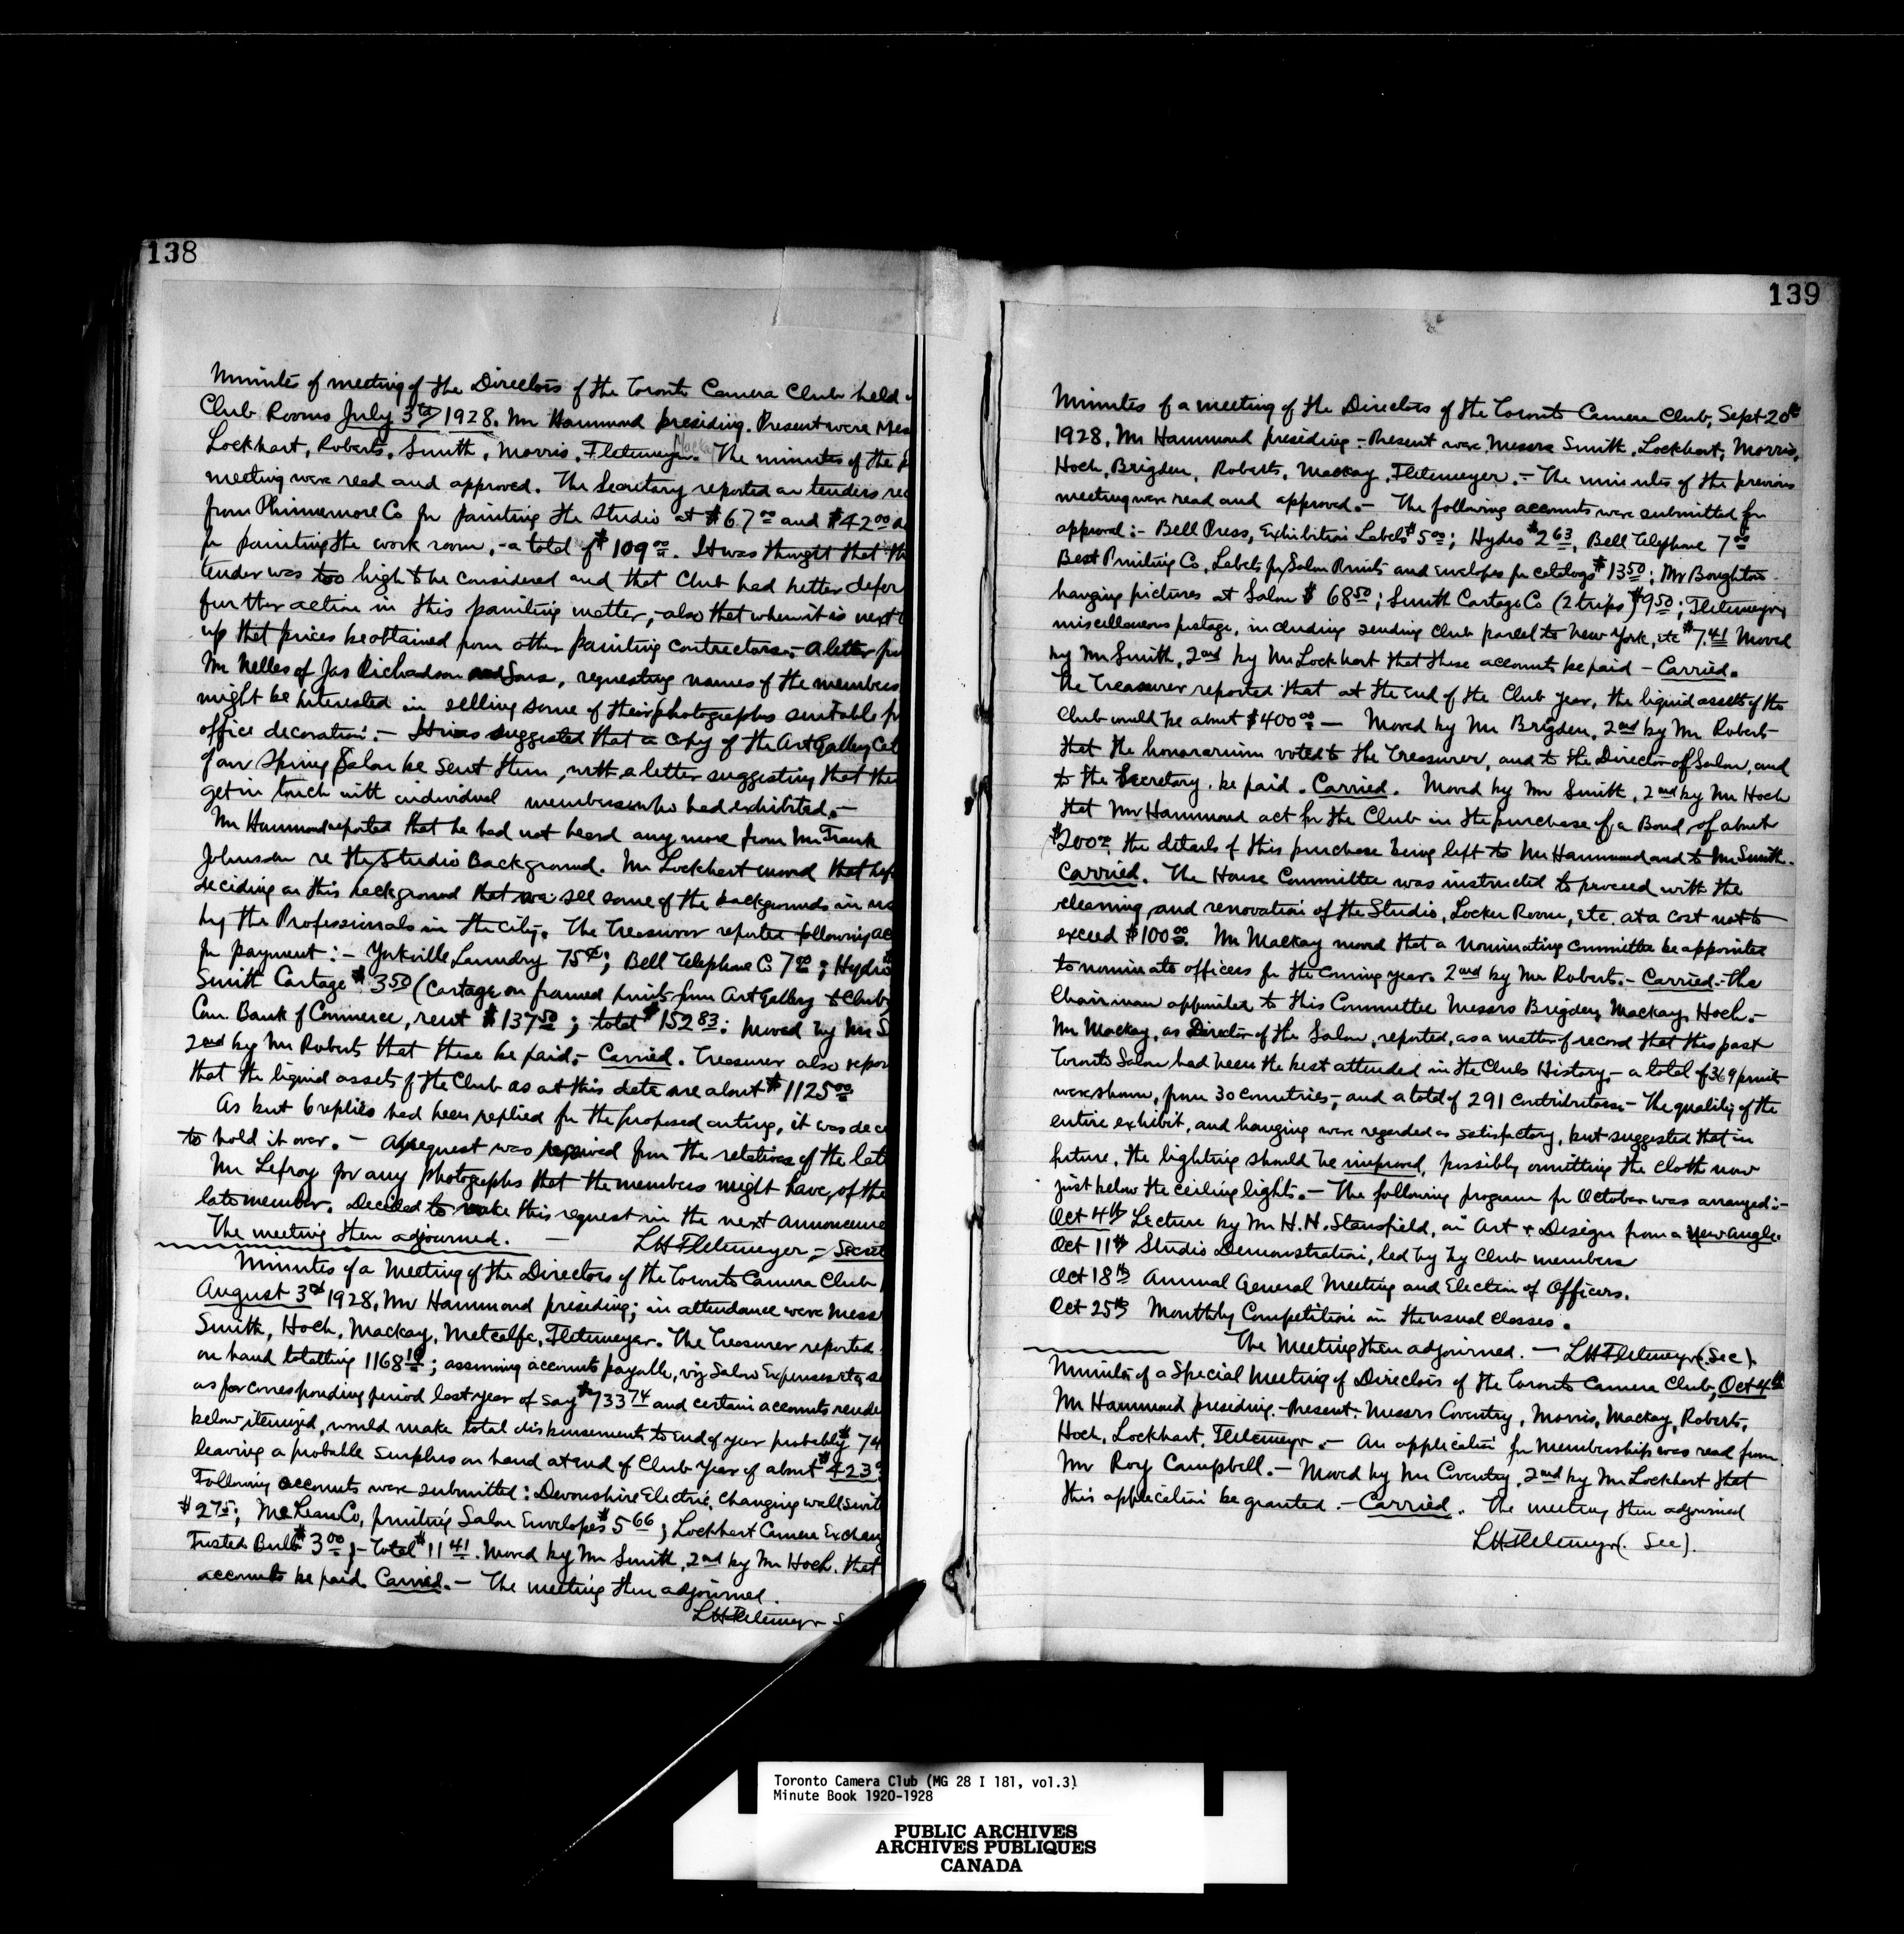 138
Minutes of meeting of the Directors of the Toronto Camera Club held
Club Rooms July 3rd 1928. Mr Hammond presiding. Present were Mes
Lockhart, Roberts, Smith, Morris, Fletemeyer. Mackay The minutes of the
meeting were read and approved. The Secretary reported on tenders rec
from Phinnemore Co for painting the studio at $67 00 and $42 00
for painting the work room, - a total of $109 00. It was thought that th
tender was too high to be considered and that Club had better defer
further action in this painting matter, - also that when it is next
up that prices be obtained from other painting contractors. - A letter
Mr Nelles of Jas Richardson and Sons, requesting names of the members
might be interested in selling some of their photographs suitable
office decoration. - It was suggested that a copy of the Art Gallery Cat
of our Spring Salon be sent them, with a letter suggesting that the
get in touch with individual members who had exhibited. -
Mr Hammond reported that he had not heard any more from Mr Frank
Johnson re the Studio Background. Mr Lockhart moved that bef
deciding on this background that we see some of the backgrounds in us
by the Professionals in the city. The Treasurer reported following ac
for payment: - Yorkville Laundry 75¢; Bell Telephone Co 7 00; Hydro
Smith Cartage $3 50 (Cartage on framed prints from Art Gallery to Club)
Can. Bank of Commerce, rent $137 50; total $152 83: Moved by Mr S
2nd by Mr Roberts that these be paid, - Carried. Treasurer also repor
that the liquid assets of the Club as at this date are about $1125 00
As but 6 replies had been replied for the proposed outing, it was dec
to hold it over. - A request was received from the relatives of the late
Mr Lefroy for any photographs that the members might have, of the
late member. Decided to make this request in the next announceme
The meeting then adjourned. - LH Fletemeyer, - Secret
Minutes of a Meeting of the Directors of the Toronto Camera Club
August 3rd 1928, Mr Hammond presiding; in attendance were Mess
Smith, Hoch, Mackay, Metcalfe, Fletemeyer. The Treasurer reported
on hand totalling 1168 10; assuming accounts payable, viz Salon Expenses etc,
as for corresponding period last year of say $733 74 and certain accounts rende
below itemized, would make total disbursements to end of year probably $74
leaving a probable surplus on hand at end of Club Year of about $423
Following accounts were submitted: Devonshire Electric, changing wall swit
$2 75; McLean Co, printing Salon Envelopes $5 66; Lockhart Camera Exchan
Frosted Bulbs $3 00; - Total $11 41. Moved by Mr Smith, 2nd by Mr Hoch. that
accounts be paid. Carried. - The meeting then adjourned.
LH Fletemeyer S
139
Minutes of a meeting of the Directors of the Toronto Camera Club, Sept 20th
1928, Mr Hammond presiding - Present were Messrs Smith, Lockhart, Morris,
Hoch, Brigden, Roberts, Mackay, Fletemeyer. - The minutes of the previous
meeting were read and approved. - The following accounts were submitted for
approval: - Bell Press, Exhibition Labels $5 00; Hydro $2 63, Bell Telephone 7 00
Best Printing Co, Labels for Salon Prints and envelopes for catalogs $13 50; Mr Boughton
hanging pictures at Salon $68 50; Smith Cartage Co (2 trips) $9 50; Fletemeyer,
miscellaneous postage, including sending club parcel to New York, etc $7.41 Moved
by Mr Smith, 2nd by Mr Lockhart that these accounts be paid - Carried.
The Treasurer reported that at the end of the Club year, the liquid assets of the
Club would be about $400 00 - Moved by Mr Brigden, 2nd by Mr Roberts
that the honorarium voted to the Treasurer, and to the Director of Salon, and
to the Secretary, be paid. Carried. Moved by Mr Smith, 2nd by Mr Hoch
that Mr Hammond act for the Club in the purchase of a Bond, of about
$200 00, the details of this purchase being left to Mr Hammond and to Mr Smith.
Carried. The House Committee was instructed to proceed with the
cleaning, and renovation of the Studio, Locker Room, etc. at a cost not to
exceed $100 00. Mr Mackay moved that a Nominating Committee be appointed
to nominate officers for the coming year. 2nd by Mr Roberts. - Carried. The
Chairman appointed to this Committee Messrs Brigden, Mackay, Hoch. -
Mr Mackay, as Director of the Salon, reported, as a matter of record that this past
Toronto Salon had been the best attended in the Clubs History, - a total of 369 prints
were shown, from 30 countries, - and a total of 291 contributors. - The quality of the
entire exhibit, and hanging were regarded as satisfactory, but suggested that in
future, the lighting should be improved, possibly omitting the cloth now
just below the ceiling lights. - The following program for October was arranged: -
Oct 4th Lecture by Mr H.H. Stansfield, on Art & Design from a New angle.
Oct 11th Studio Demonstration, led by by Club members
Oct 18th Annual General Meeting and Election of Officers.
Oct 25th Monthly Competition in the usual classes.
The Meeting then adjourned. - LH Fletemeyer (Sec).
Minutes of a Special Meeting of Directors of the Toronto Camera Club, Oct 4th
Mr Hammond presiding. - Present: Messrs Coventry, Morris, Mackay, Roberts,
Hoch, Lockhart, Fletemeyer. - An application for membership was read from
Mr Roy Campbell. - Moved by Mr Coventry, 2nd by Mr Lockhart that
this application be granted. - Carried. The meeting then adjourned
LH Fletemeyer (Sec).
Toronto Camera Club (MG 28 I 181, vol.3)
Minute Book 1920-1928
PUBLIC ARCHIVES
ARCHIVES PUBLIQUES
CANADA